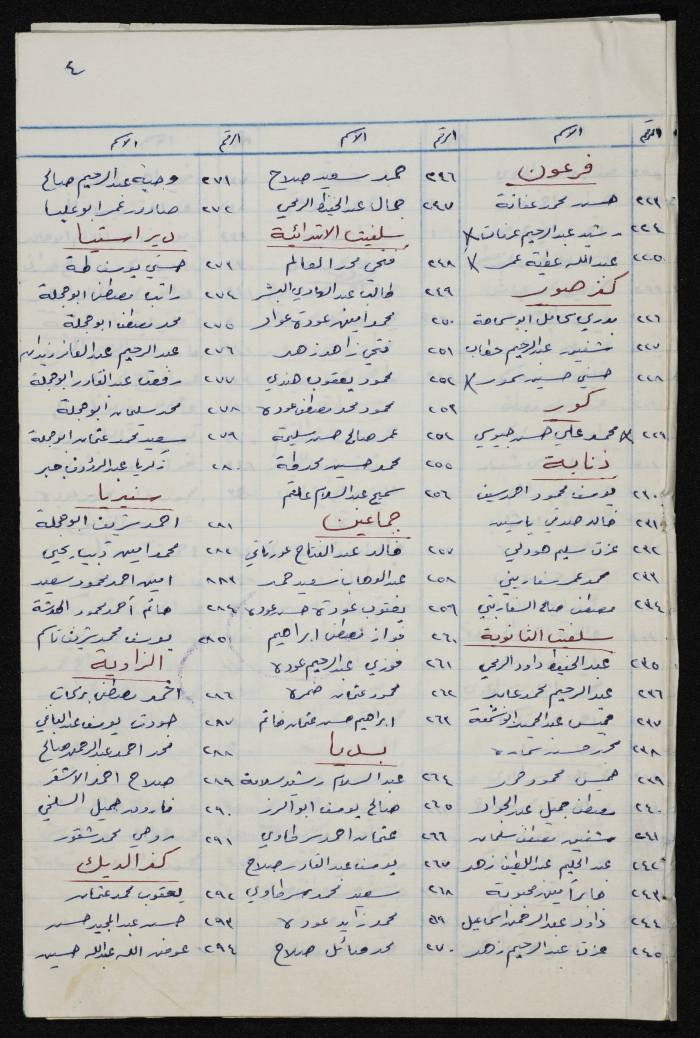 ٤
الرقم الاسم
فرعون
٢٢٣ حسن محمد عنانة
٢٢٤ رشيد عبدالرحيم عرفات x
٢٢٥ عبدالله عطية عمر x
كفر صور
٢٢٦ بدري كامل ابو سماحة
٢٢٧ شفيق عبدالرحيم حطاب
٢٢٨ حسني حسين نمور x
كور
٢٢٩ x محمد علي حسن جيوسي
ذنابة
٢٣٠ يوسف محمود احمد سيف
٢٣١ خالد صدقي ياسين
٢٣٢ عزت سليم هودلي
٢٣٣ محمد عمر سفاريني
٢٣٤ مصطفى صالح السفاريني
سلفيت الثانوية
٢٣٥ عبد الحفيظ داود الرمحي
٢٣٦ عبد الرحيم محمد عامر
٢٣٧ خميس عبدالحميد ابو شمة
٢٣٨ محمد حسن
٢٣٩ خميس محمود حمد
٢٤٠ مصطفى جميل عبد الجواد
٢٤١ شفيق مصطفى سلمان
٢٤٢ عبد الحليم عبد اللطيف زهد
٢٤٣ جابر امين محبوبة
٢٤٤ داود عبد الرحمن اسماعيل
٢٤٥ عزت عبد الرحيم زهد
الرقم الاسم
٢٩٦ حمد سعيد صلاح
٢٩٧ جمال عبد الحفيظ الرمحي
سلفيت الابتدائية
٢٤٨ فتحي محمد العالم
٢٤٩ طالب عبد الهادي البشر
٢٥٠ محمد امين عودة عواد
٢٥١ فتحي زاهد زهد
٢٥٢ محمود يعقوب هندي
٢٥٣ محمود محمد مصطفى عوده
٢٥٤ عمر صالح حسن سليمة
٢٥٥ محمد حسين محمد طه
٢٥٦ سميح عبد السلام علقم
جماعين
٢٥٧ خالد عبد الفتاح عورتاني
٢٥٨ عبد الوهاب سعيد حمد
٢٥٩ يعقوب عودة حسن عوده
٢٦٠ فواز مصطفى ابراهيم
٢٦١ فوزي عبد الرحيم عوده
٢٦٢ محمود عثمان ضمره
٢٦٣ ابراهيم حسن عثمان حاتم
بديا
٢٦٤ عبد السلام رشيد سلامة
٢٦٥ صالح يوسف ابو الرز
٢٦٦ عثمان احمد سرطاوي
٢٦٧ يوسف عبد القادر صلاح
٢٦٨ سعيد محمد سرطاوي
٢٦٩ محمد زايد عوده
٢٧٠ محمد صلاح
الرقم الاسم
٢٧١ وصفية عبد الرحيم صالح
٢٧٢ صادق عمر ابو عليا
دير استيا
٢٧٣ حسني يوسف طه
٢٧٤ راتب مصطفى ابو حجلة
٢٧٥ محمد مصطفى ابو حجلة
٢٧٦ عبد الرحيم عبد القادر زيدان
٢٧٧ رفعت عبد القادر ابو حجلة
٢٧٨ محمد سليمان ابو حجلة
٢٧٩ سعيد محمد عثمان ابو حجلة
٢٨٠ زكريا عبد الرؤوف جبر
سنيريا
٢٨١ احمد شريف ابو حجلة
٢٨٢ محمد امين ذيب يحيى
٢٨٣ امين احمد محمود سعيد
٢٨٤ حاتم أحمد محمود
٢٨٥ يوسف محمد شريف قاسم
الزاوية
٢٨٦ احمد مصطفى بركات
٢٨٧ جودت يوسف عبد الباقي
٢٨٨ محمد احمد عبد الرحمن صالح
٢٨٩ صلاح احمد الاشقر
٢٩٠ فاروق جميل السلخي
٢٩١ روحي محمد شقور
كفر الديك
٢٩٢ يعقوب محمد عثمان
٢٩٣ حسن عبد المجيد حسن
٢٩٤ عوض الله عبد الله حسين